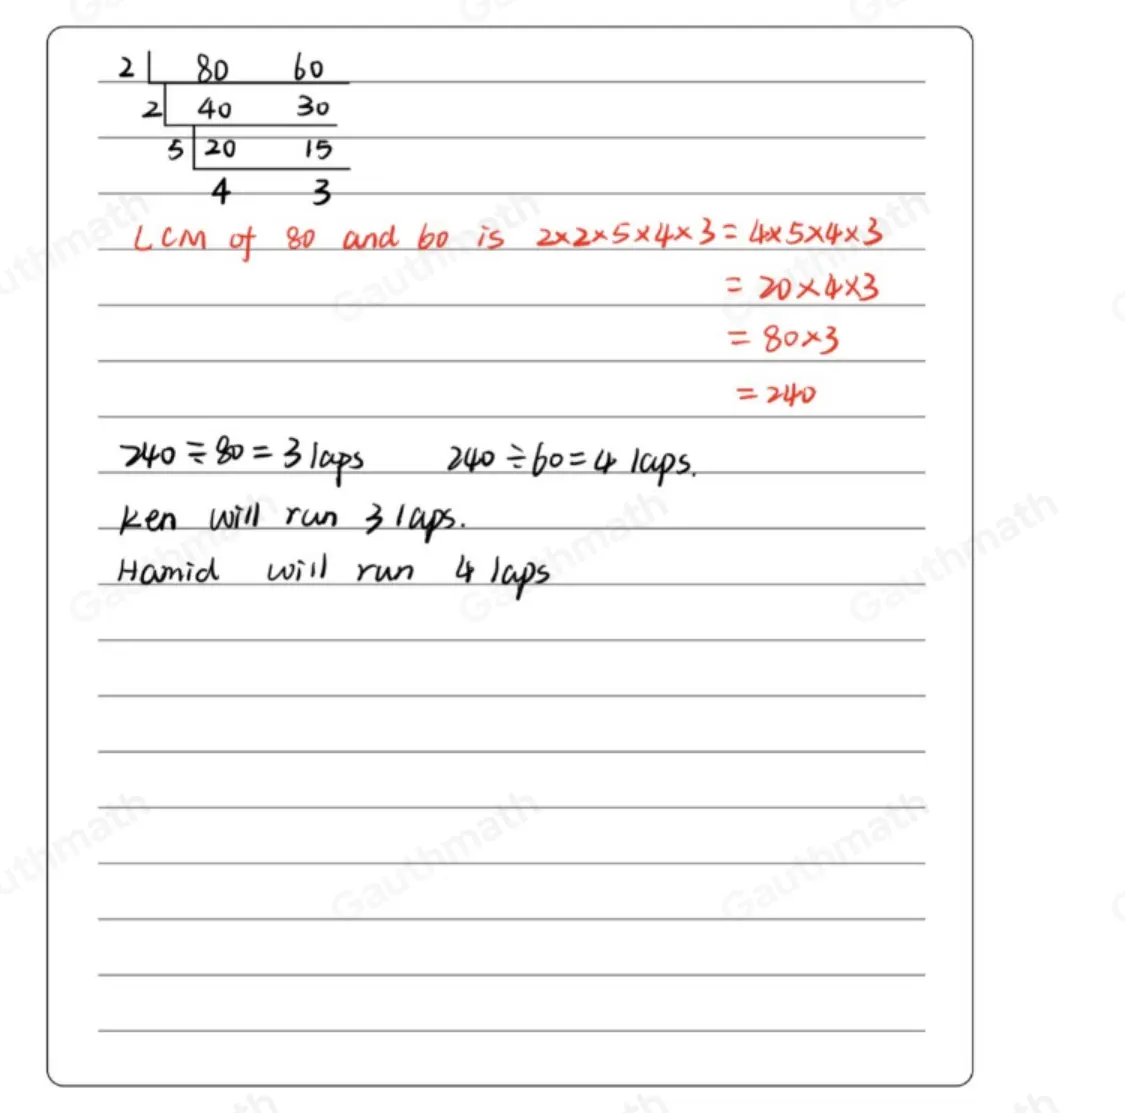 2 80 60
2 40 30
5 20 15
4 3
LCM of 80 and 60 is 2×2×5×4×3=4×5×4×3
=20×4×3
=80×3
=240
240÷80=3 laps 240÷60=4 laps.
Ken will run 3 laps.
Hamid will run 4 laps
Gauthmath